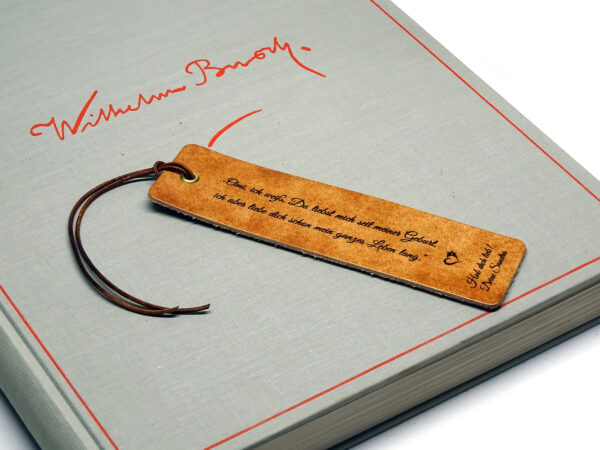 Wilhelm Busch.
„Omi, ich weiß, Du liebst mich seit meiner Geburt.
ich aber liebe dich schon mein ganzes Leben lang."
Hab dich lieb!
Deine